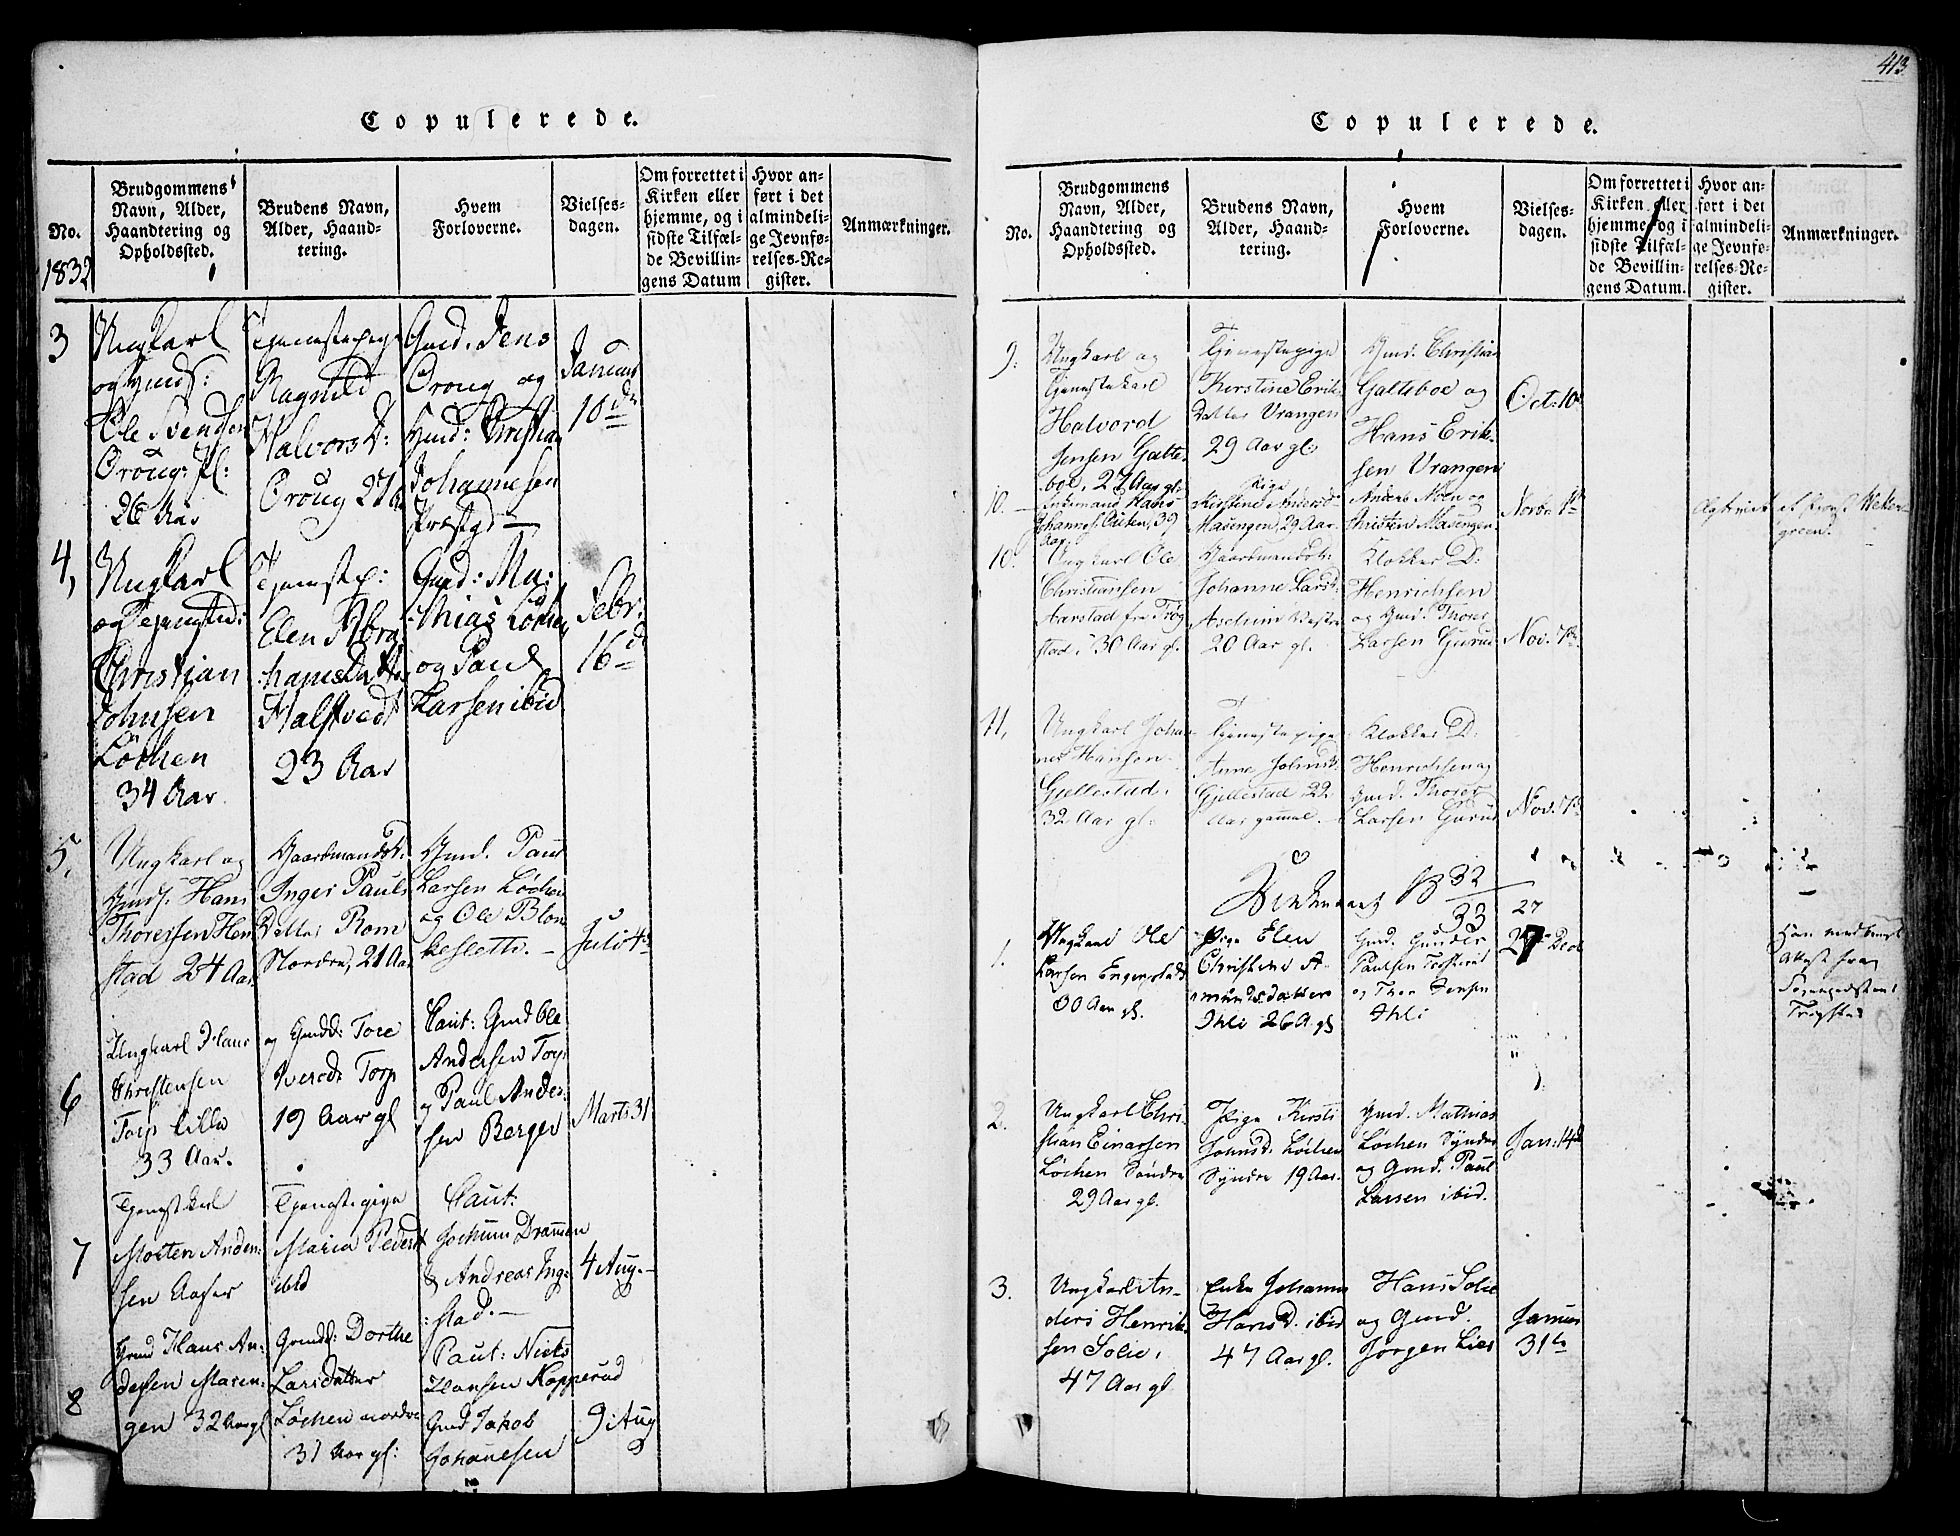 413
Copulerede.
No.
1832
Brudgommens
Navn, Alder,
Haandtering og
Opholdssted.
Brudens Navn,
Alder, Haand-
tering.
Hvem
Forloverne.
Vielses-
dagen.
Om forrettet i
Kirken eller
hjemme, og i
sidste Tilfæl-
de Bevillin-
gens Datum
Hvor an-
ført i det
almindeli-
ge Jevnfø-
relses-Re-
gister.
Anmærkninger.
3
Ungkarl
og Gmds:
Ole Svendsen
Oroug. Pl:
26 Aar
Tjenestepige
Ragnild
Halvors D:
Oroug 27 A
Gmd. Jens
Oroug og
Hmd: Christian
Johannesen
Præstgd
Januar
10 de
4,
Ungkarl
og
Christian
Johnsen
Löchen
34 Aar
Tjenestep:
Elen Abra
hamsdatter
Halstvedt
23 Aar
Gmd: Ma:
thias Löchen
og Paul
Larsen ibid
Febr:
16 d
5,
Ungkarl og
Gmds. Hans
Thoressen Hen
stad 24 Aar
Gaardmandsd:
Inger Pauls
Datter Rom
Nordre, 21 Aar
Gmd. Paul
Larsen Löchen
og Ole Blom
keslette.
Juli 4de
6
Ungkarl Hans
Christensen
Torp lille
33 Aar.
og Gmdd: Tore
Iversdr Torp
19 Aar gl
Caut: Gmd Ole
Andersen Torp
og Paul Ander
sen Berger
Marts 31
7
Tjenestkarl
Morten Ander:
sen Aaser
Tjenestepige
Maria Pedersd
ibid
Caut:
Jochum Dramen
& Andreas Ing:
:stad.
4 Aug.
8
Gmd Hans An:
dersen Masen:
gen 32 Aar gl
Gmdd: Dorthe
Larsdatter
Löchen nordre
31 Aar gl:
Caut: Niels
Hansen Kopperud
Gmd Jakob
Johanesen
9 Aug
Copulerede.
No.
Brudgommens
Navn, Alder,
Haandtering og
Opholdssted.
Brudens Navn,
Alder, Haand-
tering.
Hvem
Forloverne.
Vielses-
dagen.
Om forrettet i
Kirken eller
hjemme, og i
sidste Tilfæl-
de Bevillin-
gens Datum.
Hvor an-
ført i det
almindeli-
ge Jevnfø-
relses-Re-
gister.
Anmærkninger.
9.
Ungkarl og
Tjenestekarl
Halvord
Jensen Galte-
boe, 27 Aar gl.
Tjenestepige
Kerstine Eriks
Datter Vrangen
29 Aar gl:
Gmd. Christian
Galteboe og
Hans Erik-
sen Vrangen
Oct: 10d
10.
Enkemand Hans
Johannes. 39
Aar.
Pige
Kirstine Andersd
Masengen, 29 Aar.
Anders Moen og
Christen Masengen
Novbr 1ste
10.
Ungkarl Ole
Christiansen
Aarstad fra Trög
stad, 30 Aar gl.
Gaardmandsd:
Johanne Larsd:
Aschim Vestre
20 Aar gl.
Klokker D:
Henrichsen
og Gmd. Thorer
Larsen Gurud
Nov. 7de
11,
Ungkarl Johan-
nes Hansen
Gjellestad,
32 Aar gl:
Tjenestepige
Anne Johnsd:
Gjellestad 22
Aar gammel.
Klokker D:
Henrichsen og
Gmd. Thorer
Larsen Gurud
Nov. 7de
32
33
1.
Ungkarl Ole
Larsen Engerstads
30 Aar gl.
Pige Elen
Christine A-
mundsdatter
Ihli 26 A gl
Gmd. Gunder
Paulsen
og Thor Jensen
Ihli
27
27 Decb
Han medbragt
Attest fra
Sognepræsten i
Trygstad
2.
Ungkarl Chri
stian Einarsen
Löchen Söndre
29 Aar gl.
Pige Kersti
Johnsd. Löchen
Syndre 19 Aar.
Gmd. Mathias
Löchen Syndre
og Gmd. Paul
Larsen ibid.
Jan: 14d
3.
Ungkarl An-
ders Henrik
sen Solie,
47 Aar gl
Enke Johanne
Hansd. ibid
47 Aar gl.
Hans Solie
og Gmd.
Jörgen Lier
Januar
31te